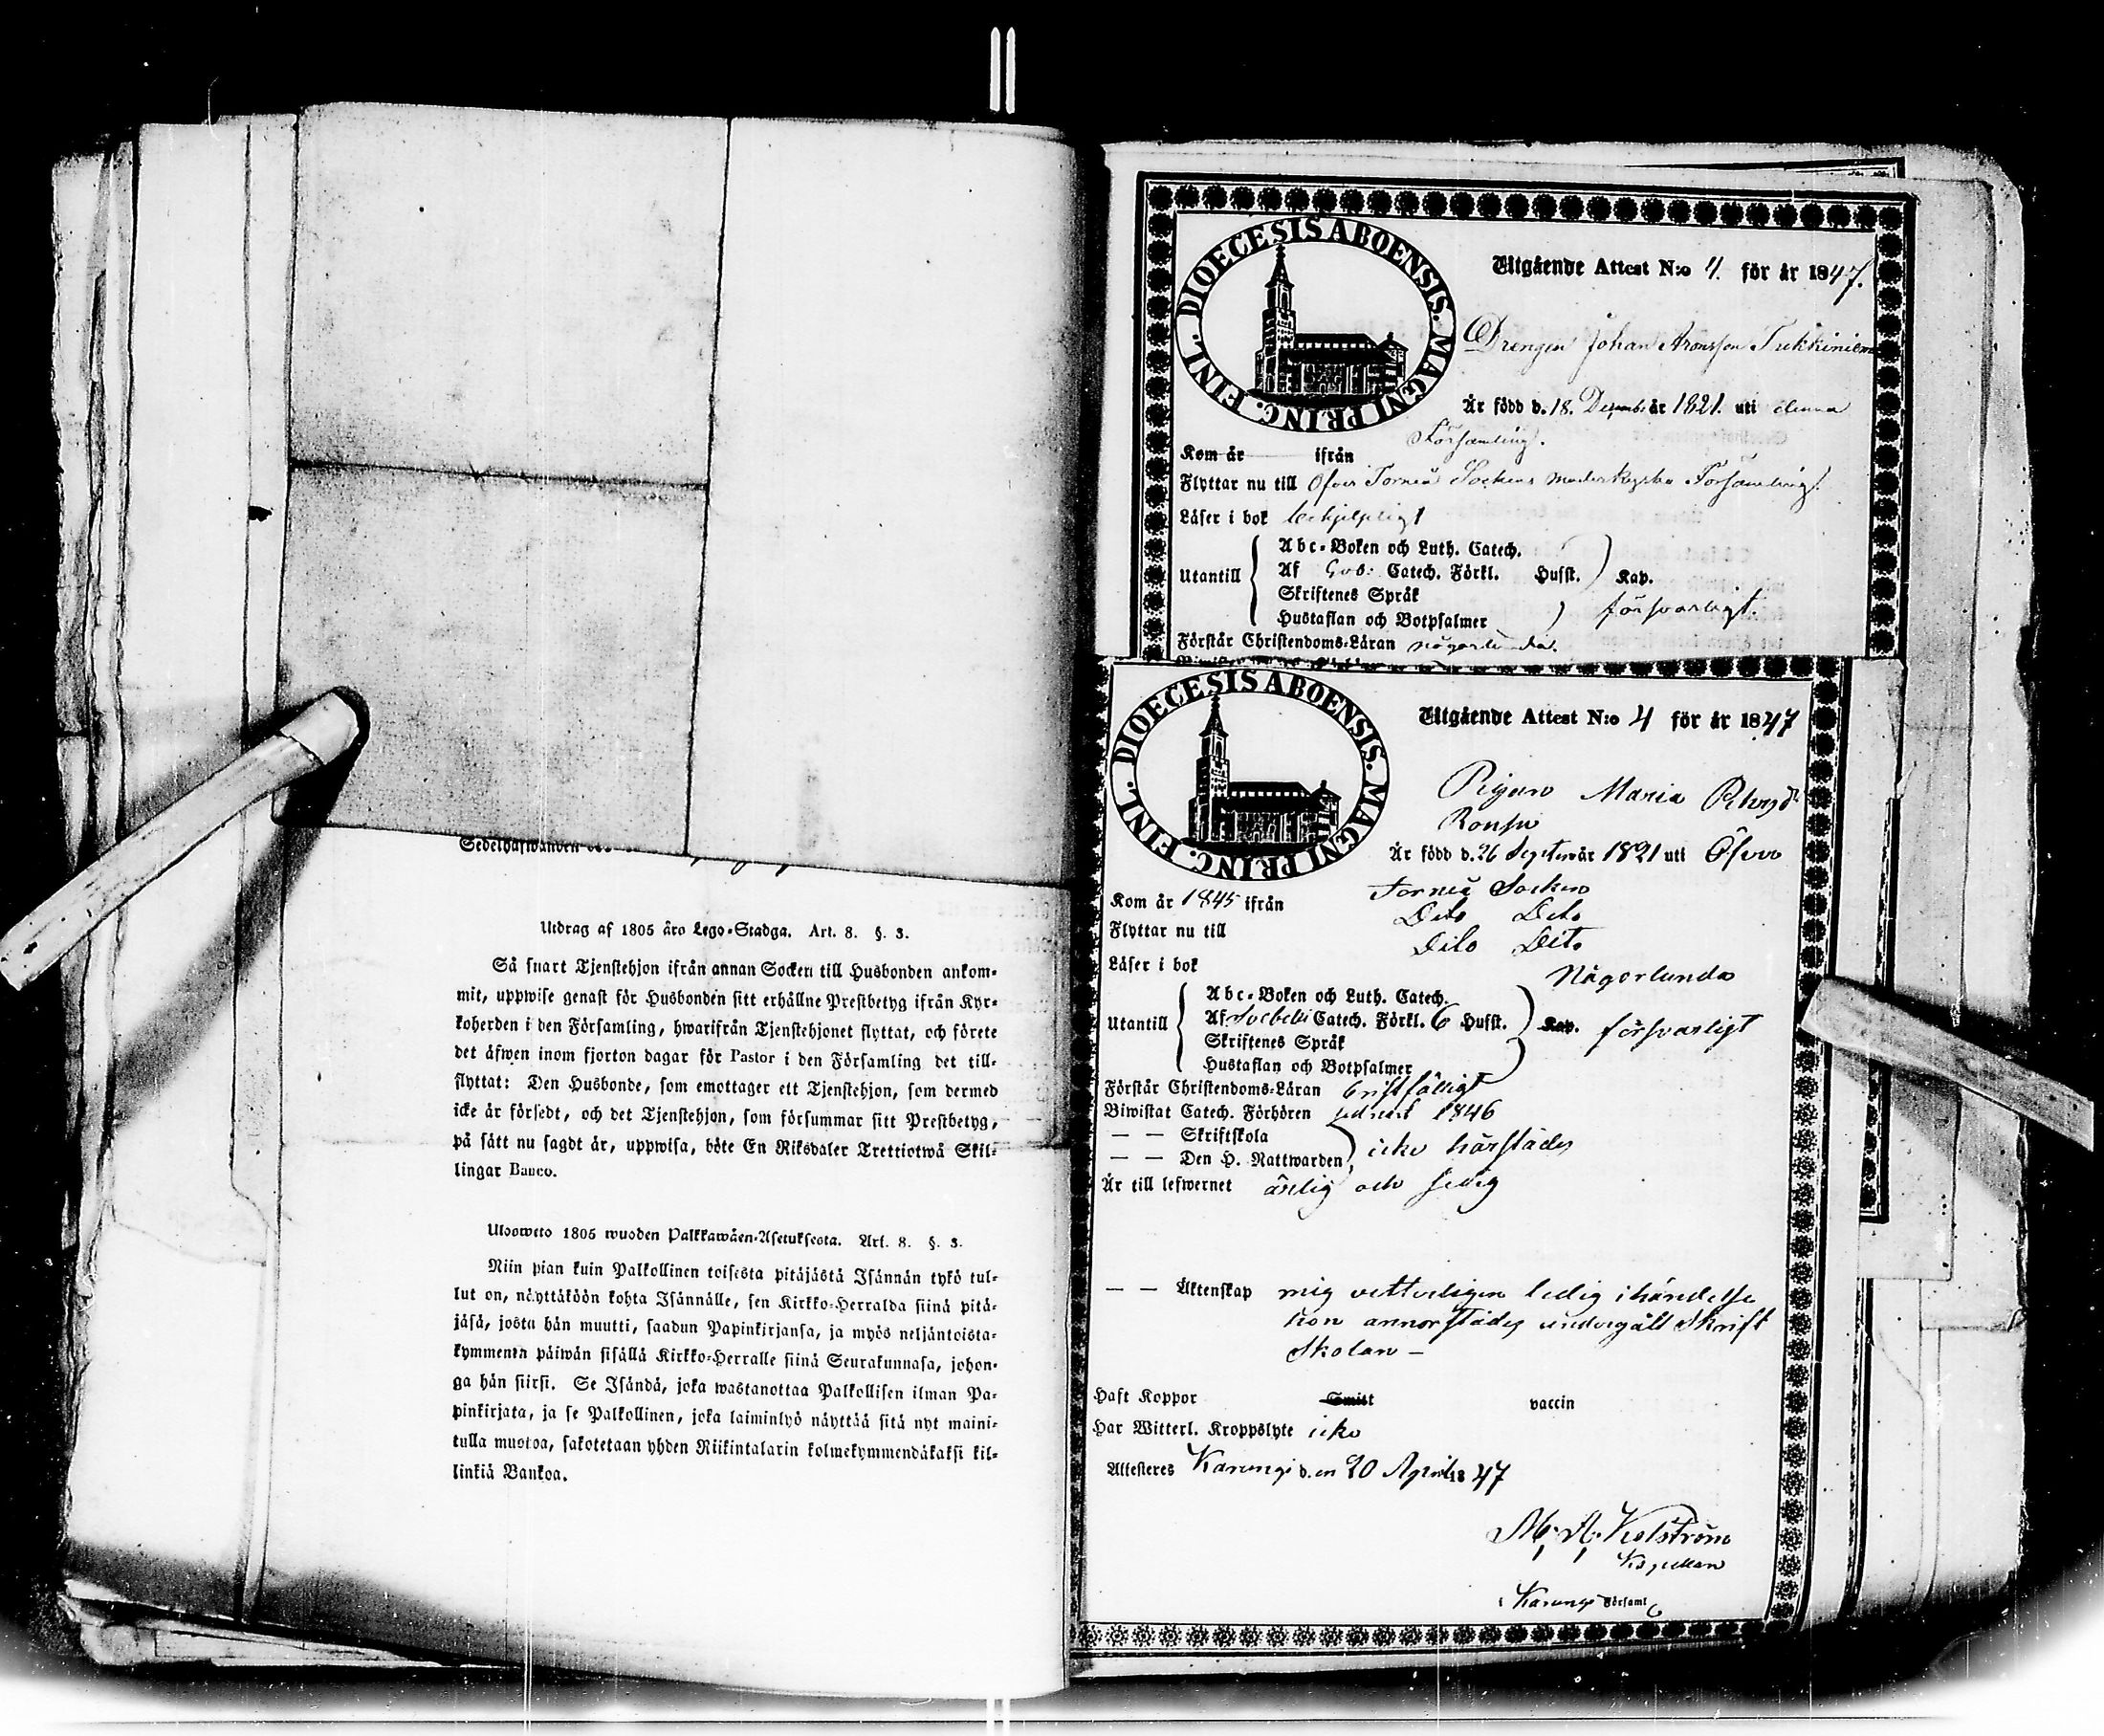 Utdrag af 1805 års Lego-Stadga. Art. 8. §. 3.
Så snart Tjenstehjon ifrån annan Socken till Husbonden ankom-
mit, uppwise genast för Husbonden sitt erhållne Prestbetyg ifrån Kyr-
koherden i den Församling, hwarifrån Tjenstehjonet flyttat, och förete
det äfwen inom fjorton dagar för Pastor i den Församling det till-
flyttat: Den Husbonde, som emottager ett Tjenstehjon, som dermed
icke är försedt, och det Tjenstehjon, som försummar sitt Prestbetyg,
på sätt nu sagdt är, uppwisa, böte En Riksdaler Trettiotwå Skil-
lingar Banco.
Ulosweto 1805 wuoden Palkkawäen-Asetuksesta. Art. 8. §. 3.
Niin pian kuin Palkollinen toisesta pitäjästä Isännän tykö tul-
lut on, näyttäköön kohta Isännälle, sen Kirkko-Herralda siinä pitä-
jäsä, josta hän muutti, saadun Papinkirjansa, ja myös neljäntoista-
kymmentä päiwän sisällä Kirkko-Herralle siinä Seurakunnasa, johon-
ga hän siirsi. Se Isändä, joka wastanottaa Palkollisen ilman Pa-
pinkirjata, ja se Palkollinen, joka laiminlyö näyttää sitä nyt maini-
tulla muotoa, sakotetaan yhden Riikintalarin kolmekymmendäkaksi kil-
linkiä Bankoa.
DIOECESIS ABOENSIS. MAGNI PRINC. FINL.
Utgående Attest N:o 4. för år 1847.
Drengen Johan Aronsson Tukkiniemi
Är född d. 18. Decemb. år 1821. uti denna
Församling.
Kom år ifrån
Flyttar nu till Öfver Torneå Sockens moderkyrko Församling.
Läser i bok behjelpligt
Abc-Boken och Luth. Catech.
Utantill Af Catech. Förkl. Husst. Kap.
Skriftenes Språk
Hustaflan och Botpsalmer försvarligt.
Förstår Christendoms-Läran någorlunda.
DIOECESIS ABOENSIS. MAGNI PRINC. FINL.
Utgående Attest N:o 4 för år 1847
Pigan Maria
Är född d. 26 September år 1821 uti Öfver
Torneå Socken
Kom år 1845 ifrån Dito Dito
Flyttar nu till Dito Dito
Läser i bok Någorlunda
Abc-Boken och Luth. Catech.
Utantill Af Svebelii Catech. Förkl. 6 Husst. Kap. försvarligt
Skriftenes Språk
Hustaflan och Botpsalmer
Förstår Christendoms-Läran bristfälligt
Biwistat Catech. Förhören sednast 1846
— — Skriftskola
— — Den H. Nattwarden icke härstädes
Är till lefwernet ärlig och sedig
— — Äktenskap mig vetterligen ledig ihändelse
hon annorstädes undergått Skrift
Skolan —
Haft Koppor Smitt vaccin
Har Witterl. Kroppslyte icke
Attesteres Karungi d.en 20 April 1847
Kapellan
i Karungi Församl